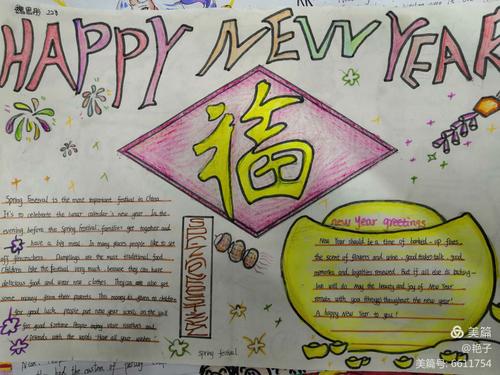 HAPPY NEW YEAR
福
Spring Festival is the most important festival in China
It's to celebrate the lunar calendar's new year. In the
evening before the Spring Festival, families get together and
have a big meal. In many places people like to set
off firecrackers. Dumplings are the most traditional food.
Children like the festival very much, because they can have
delicious food and wear new clothes. They can also get
some money from their parents. This money is given to children
for good luck. People put new year scrolls on the wall
for good fortune. People enjoy visit relatives and
friends with the words "Have all your wishes."
spring festival
new Year greetings
New Year should be a time of banked-up fires,
the scent of flowers and wine, good talks, good
memories and loyalties renewed. But if all else is lacking-
love will do. May the beauty and joy of New Year
remain with you throughout the new year!
A happy New Year to you!
美篇
@艳子
美篇号: 6611754